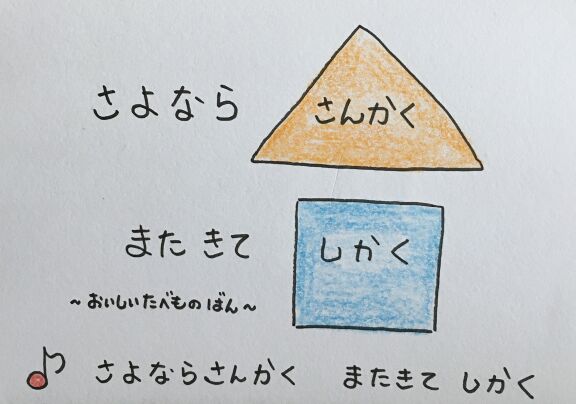 さよなら さんかく
また きて しかく
～おいしいたべものばん～
さよならさんかく またきて しかく